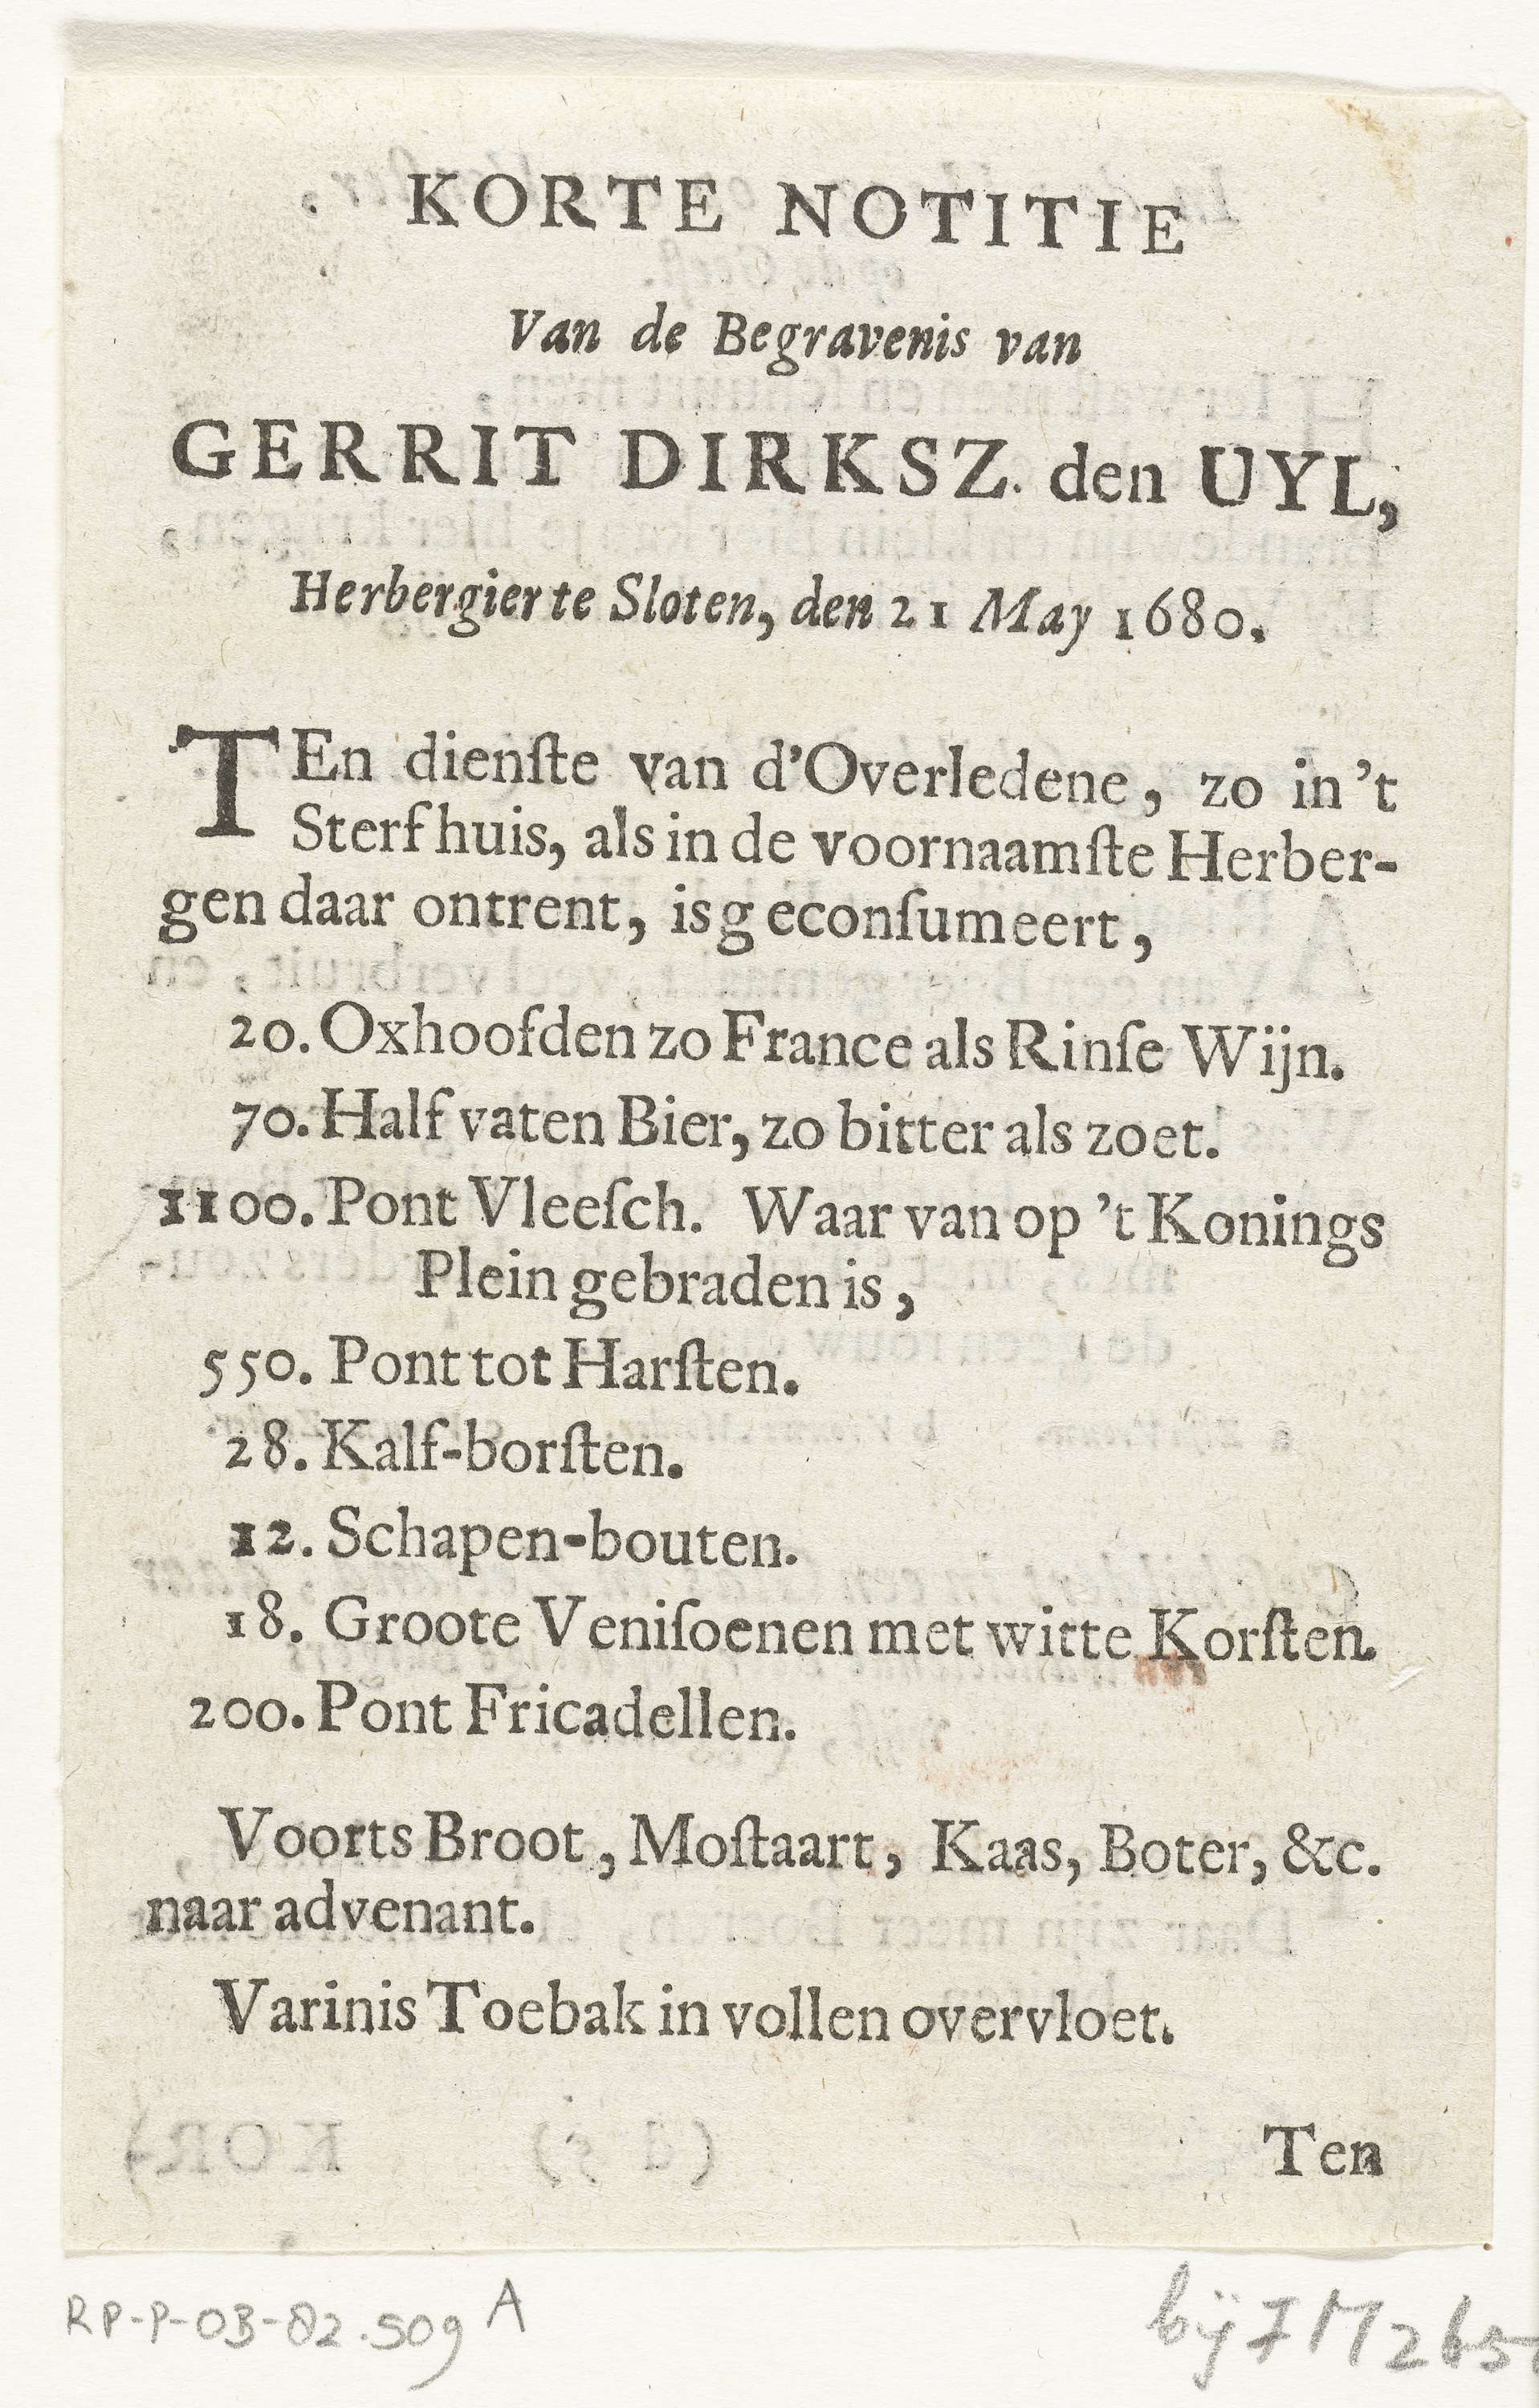 KORTE NOTITIE
Van de Begravenis van
GERRIT DIRKSZ. den UYL,
Herbergier te Sloten, den 21 May 1680.
TEn dienſte van d'Overledene, zo in 't
Sterfhuis, als in de voornaamſte Herber-
gen daar ontrent, is geconſumeert,
20. Oxhoofden zo France als Rinſe Wijn.
70. Half vaten Bier, zo bitter als zoet.
1100. Pont Vleeſch. Waar van op 't Konings
Plein gebraden is,
550. Pont tot Harſten.
28. Kalf-borſten.
12. Schapen-bouten.
18. Groote Veniſoenen met witte Korſten.
200. Pont Fricadellen.
Voorts Broot, Moſtaart, Kaas, Boter, &c.
naar advenant.
Varinis Toebak in vollen overvloet.
Ten
RP-P-OB-82.509 A
bij FM 265